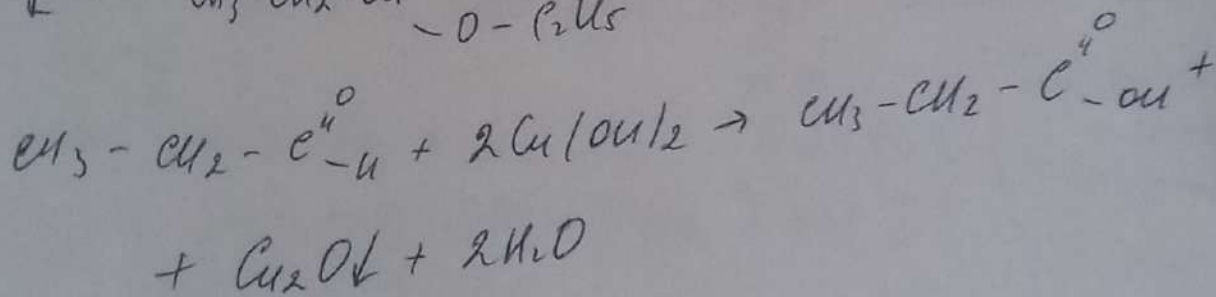 - O - C₂H₅
CH₃ - CH₂ - C=O - H + 2Cu(OH)₂ → CH₃ - CH₂ - C=O - OH +
+ Cu₂O↓ + 2H₂O